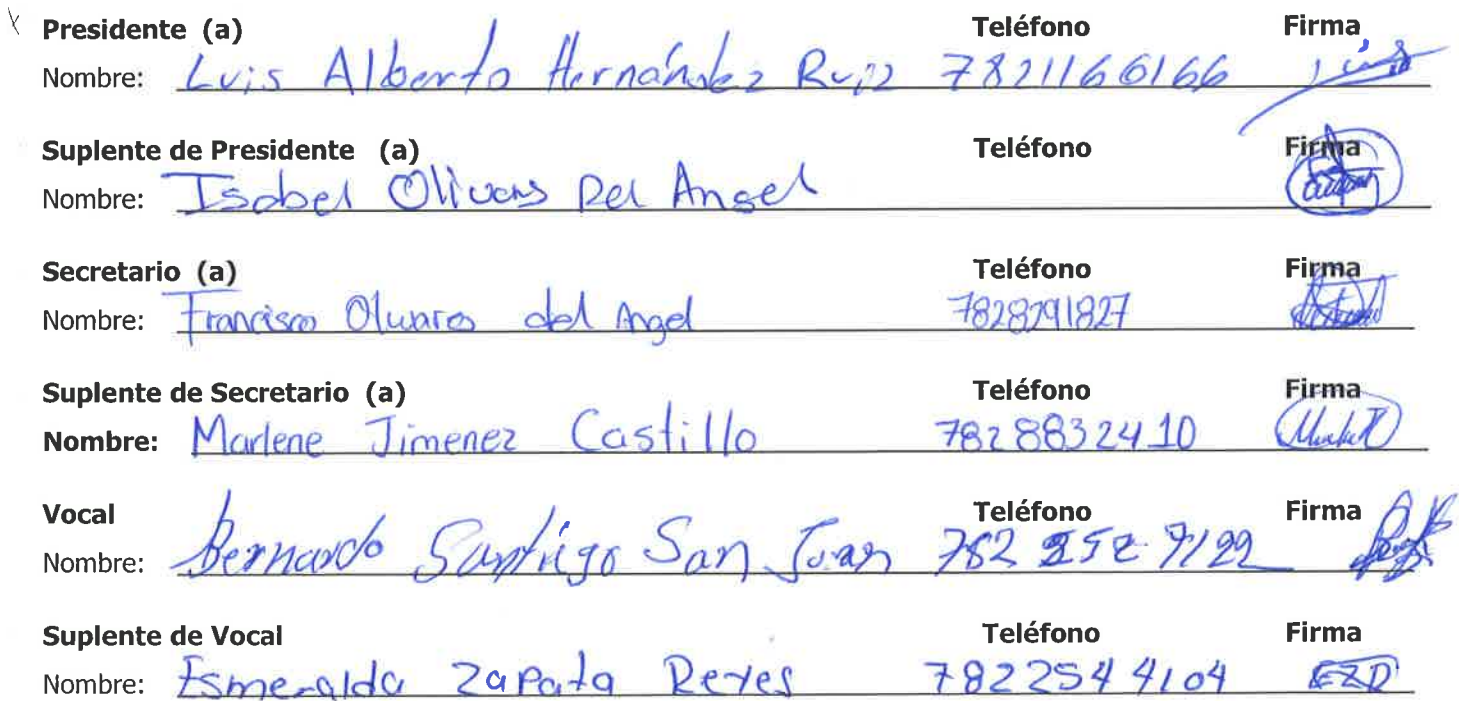 Presidente (a) Teléfono Firma
Nombre: Luis Alberto Hernández Ruiz 7821166166
Suplente de Presidente (a) Teléfono Firma
Nombre: Isabel Olivares Del Angel
Secretario (a) Teléfono Firma
Nombre: Francisco Olivares del Angel 7828291827
Suplente de Secretario (a) Teléfono Firma
Nombre: Marlene Jimenez Castillo 7828832410
Vocal Teléfono Firma
Nombre: Bernardo Santiago San Juan 782
Suplente de Vocal Teléfono Firma
Nombre: Esmeralda Zapata Reyes 7822544104 EZR